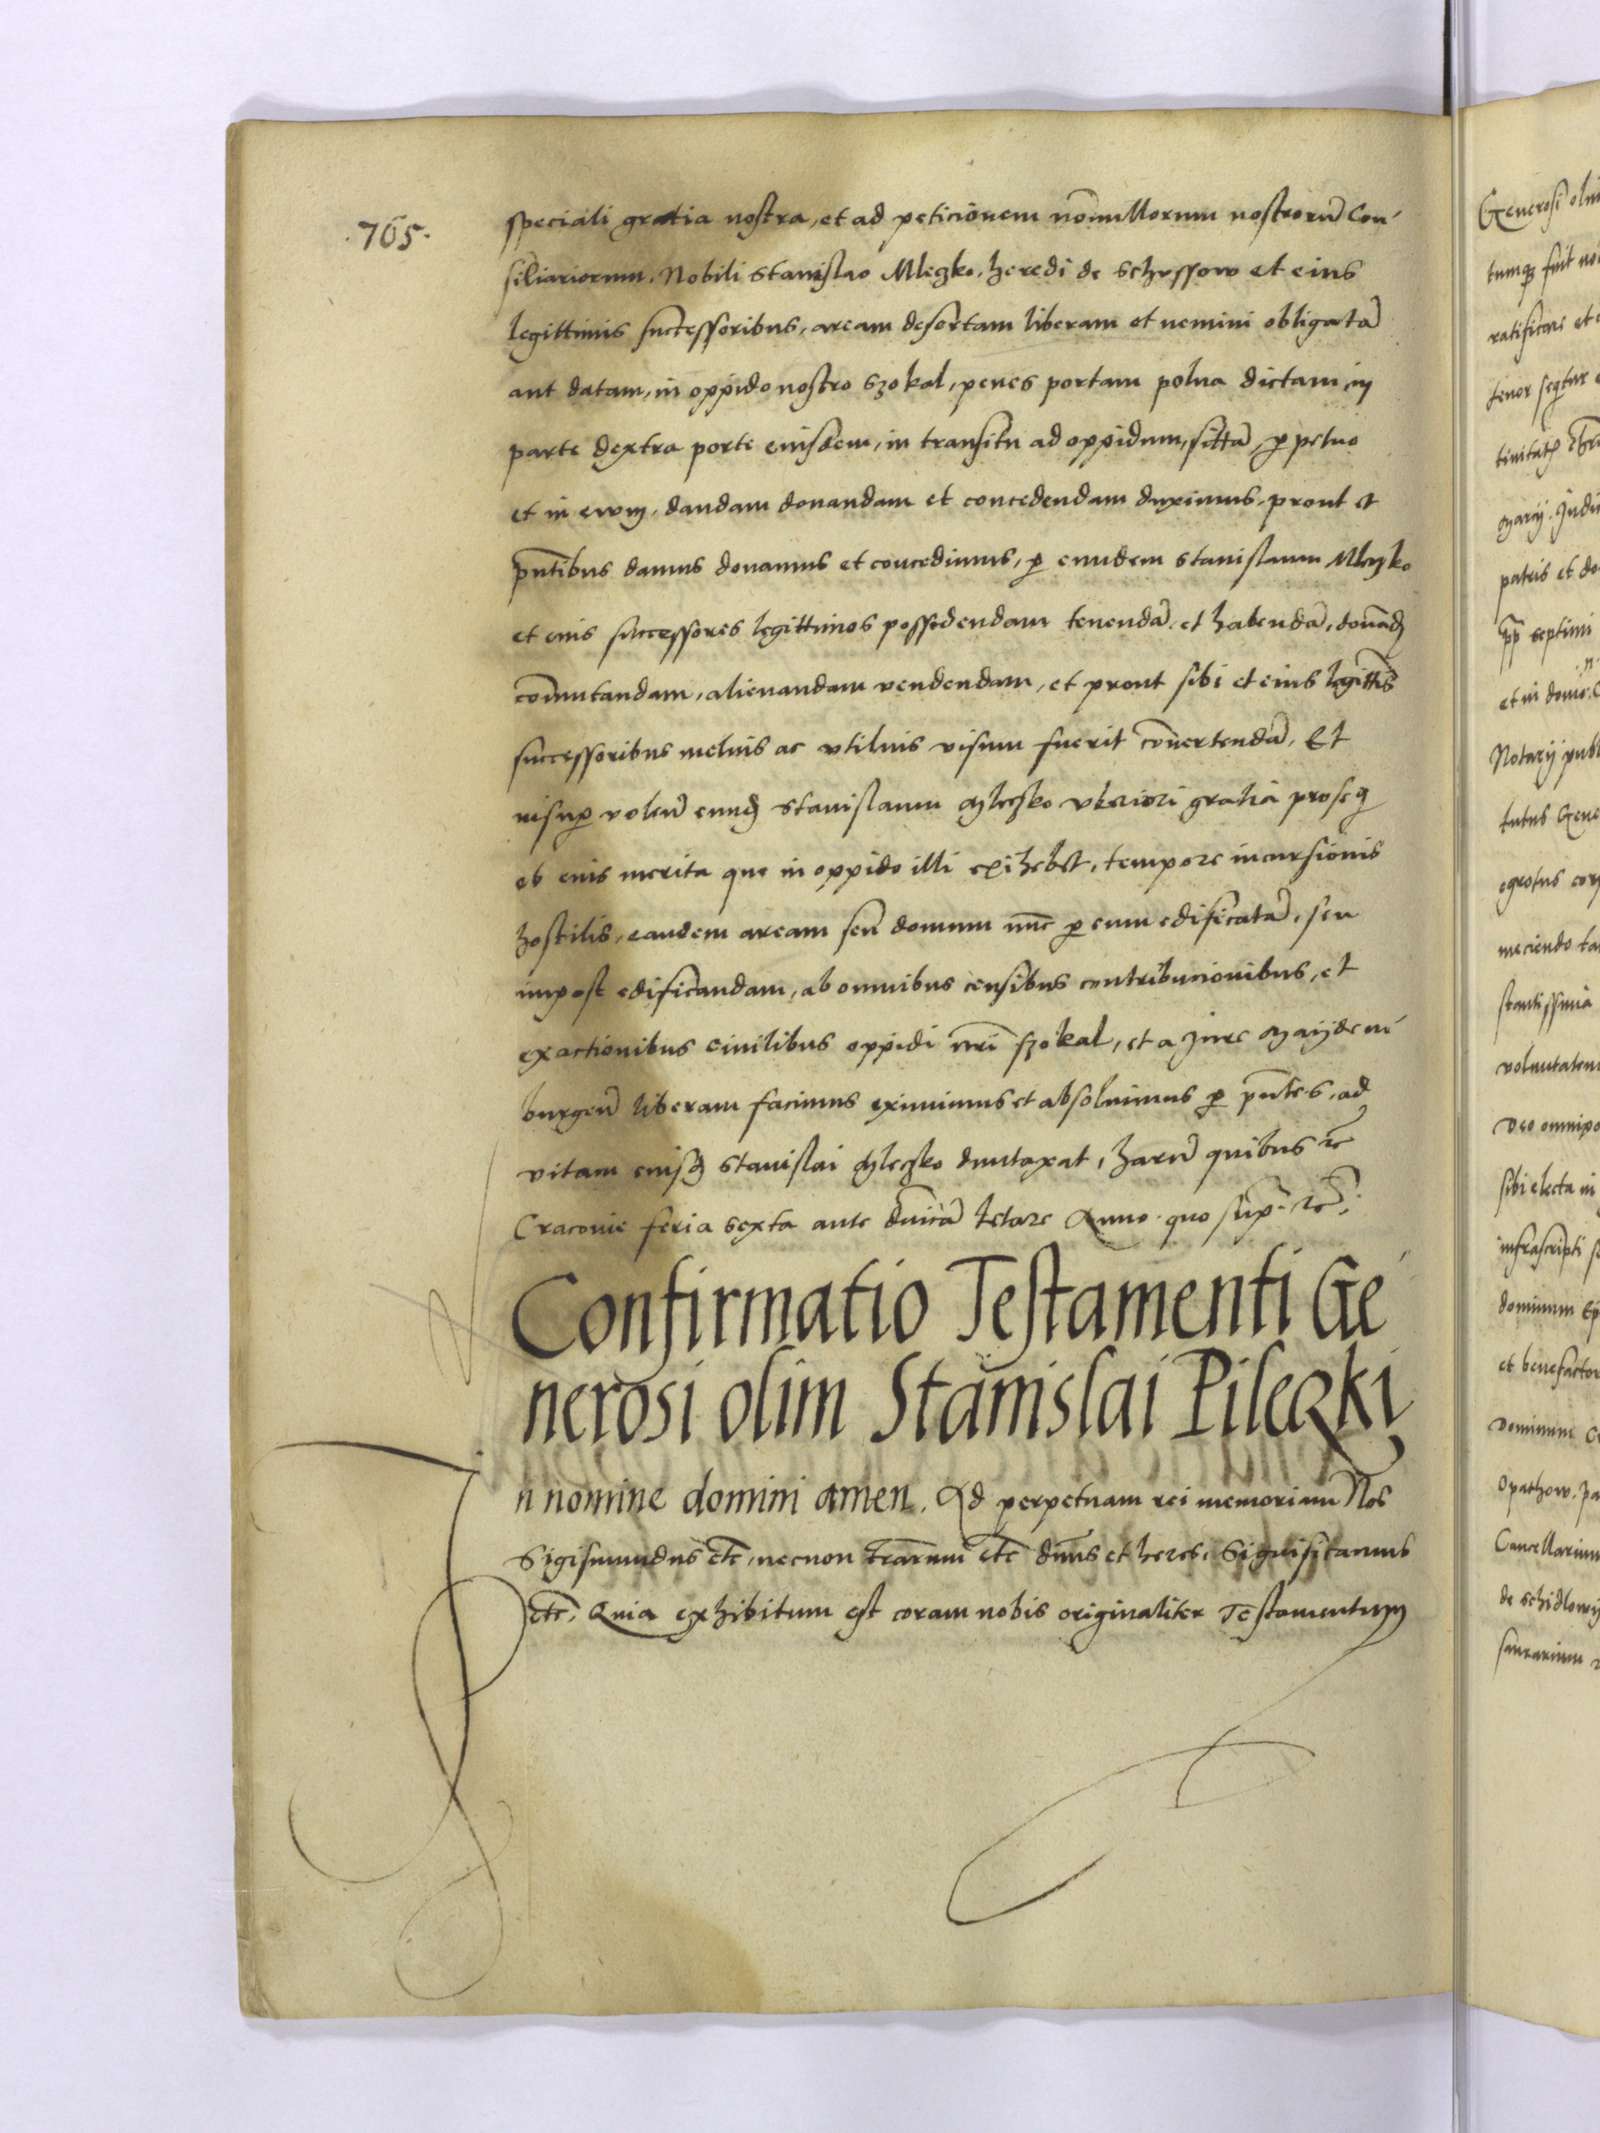 ·765·
speciali gratia nostra, et ad peticionem nōnullorum nostrorū Con
siliariorum. Nobili Stanislao Mleczko, heredi de Schussow et eius
legittimis successoribus, aream desertam liberam et nemini obligatā
aut datam, in oppido nostro Szokal, penes portam polna dictam in
parte dextra porte eiusdem, in transitu ad oppidum, sittā perpetuo
et in ewm, dandam donandam et concedendam duximus, prout et
pn̄tibus damus donamus et concedimus, p eundem Stanislaum Mleczko
et eius successores legittimos possidendam tenendā et habendā, donād
com̄utandam, alienandam vendendam, et prout sibi et eius legittīs
successoribus melius ac vtilius visum fuerit cōvertendā. Et
insup volen̄ eund Stanislaum Mleczko vberiori gratia proseq
ob eius merita que in oppido illi exihebet, tempore incursionis
hostilis, eandem aream seu domum nūc p eum edificatā, seu
impost edificandam, ab omnibus censibus contribucionibus, et
exactionibus ciuilibus oppidi nr̄i Szokal, et a Jure Maijdem
burgen̄ liberam facimus eximimus et absoluimus p pn̄tes, ad
vitam eiusd Stanislai Mleczko dumtaxat, harū quibus rc̄
Cracouie feria sexta ante dn̄icā letare Anno quo sup̄. rc̄.
Confirmatio Testamenti Ge
nerosi olim Stanislai Pileczki
In nomine domini amen. Ad perpetuam rei memoriam Nos
Sigismundus etc̄, necnon tr̄arum etc̄ dn̄us et heres. Significamus
etc̄, Quia exhibitum est coram nobis originaliter Testamentum
Generosi
tumq fuit
ratificare et
tenor seqtur
patris et
septimi
et in
Notarij
tutus
egrotus
Deo
sibi electa in
infrascripti
dominum
et
dominum
Opathow
Cancellarium
de Schidlowij